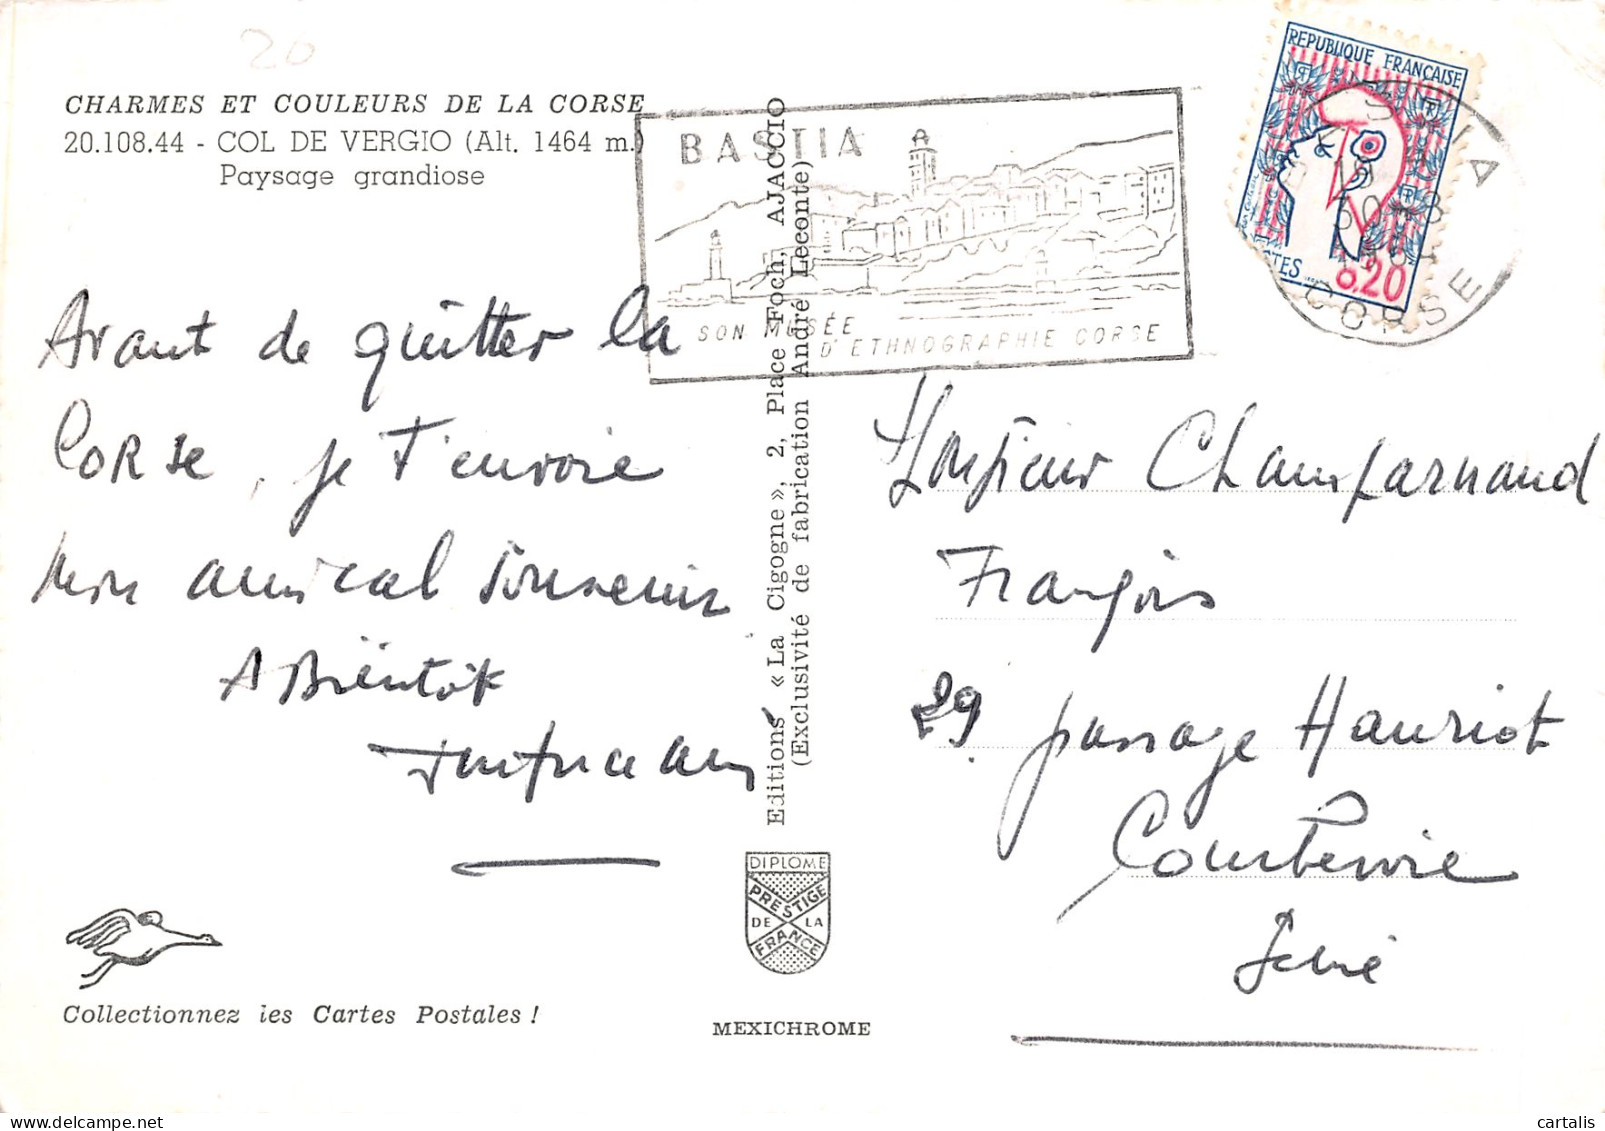 20
CHARMES ET COULEURS DE LA CORSE
20.108.44 - COL DE VERGIO (Alt. 1464 m.)
Paysage grandiose
BASTIA
SON MUSÉE
D'ETHNOGRAPHIE CORSE
REPUBLIQUE FRANÇAISE
0.20
CORSE
Avant de quitter la
CORSE, je t'envoie
mon amical souvenir
A Bientôt
Editions « La Cigogne », 2, Place Foch, AJACCIO
(Exclusivité de fabrication André Leconte)
Monsieur Champarnaud
François
29 passage Hauriot
Courbevoie
Seine
DIPLOME
PRESTIGE
DE LA
FRANCE
Collectionnez les Cartes Postales !
MEXICHROME
cartalis